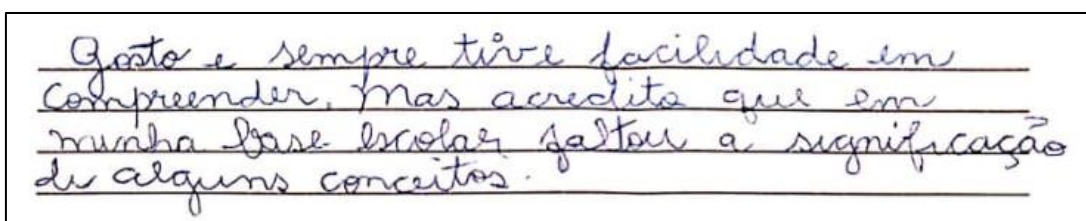 Gosto e sempre tive facilidade em
compreender. Mas acredito que em
minha base escolar faltou a significação
de alguns conceitos.